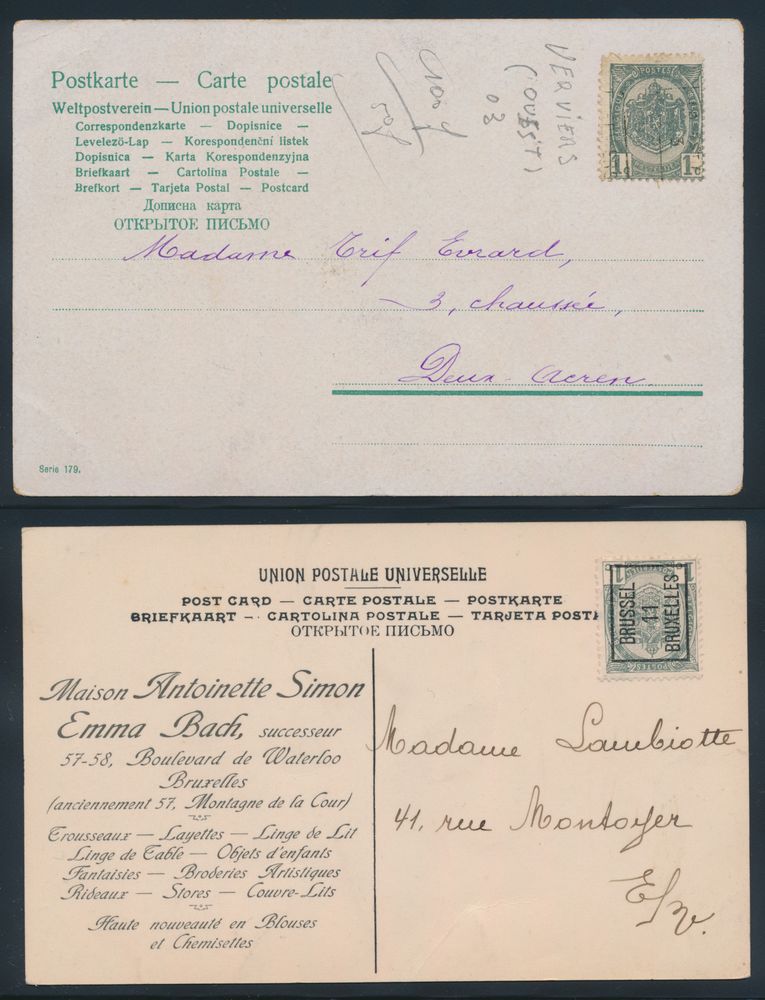 Postkarte — Carte postale
Weltpostverein — Union postale universelle
Correspondenzkarte — Dopisnice —
Levelező-Lap — Korespondenční listek
Dopisnica — Karta Korespondenzyjna
Briefkaart — Cartolina Postale —
Brefkort — Tarjeta Postal — Postcard
Дописна карта
ОТКРЫТОЕ ПИСЬМО
VERVIERS
(OUEST)
03
POSTES
1 1
Madame Trif Evrard,
3, chaussée,
Deux-Acren
Serie 179.
UNION POSTALE UNIVERSELLE
POST CARD — CARTE POSTALE — POSTKARTE
BRIEFKAART — CARTOLINA POSTALE — TARJETA POSTA
ОТКРЫТОЕ ПИСЬМО
BRUSSEL
11
BRUXELLES
1 1
POSTES
Maison Antoinette Simon
Emma Bach, successeur
57-58, Boulevard de Waterloo
Bruxelles
(anciennement 57, Montagne de la Cour)
Trousseaux — Layettes — Linge de Lit
Linge de Table — Objets d'enfants
Fantaisies — Broderies Artistiques
Rideaux — Stores — Couvre-Lits
Haute nouveauté en Blouses
et Chemisettes
Madame Lambiotte
41, rue Montoyer